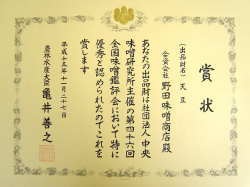 賞状
（出品財名）天豆
合資会社 野田味噌商店殿
あなたの出品財は社団法人中央
味噌研究所主催の第四十六回
全国味噌鑑評会において特に
優秀と認められたのでこれを
賞します
平成十五年十一月二十七日
農林水産大臣 亀井善之